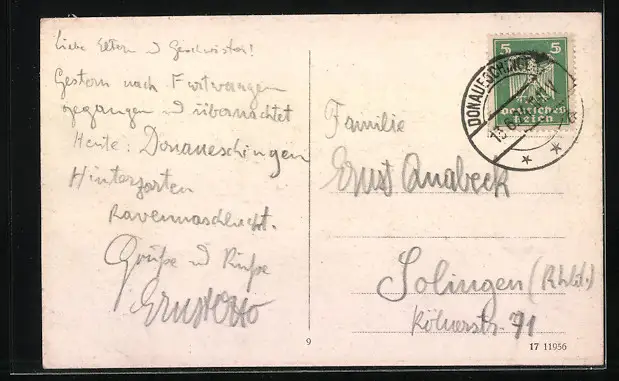 Liebe Eltern u Geschwister!
Gestern nach Furtwangen
gegangen u übernachtet
Heute: Donaueschingen
Hinterzarten
Ravennaschlucht.
Grüße u Küsse
Ernst Otto
5 5
Deutsches
Reich
DONAUESCHINGEN
Familie
Ernst Quabeck
Solingen (Rhld.)
Kölnerstr. 71
9
17 11956